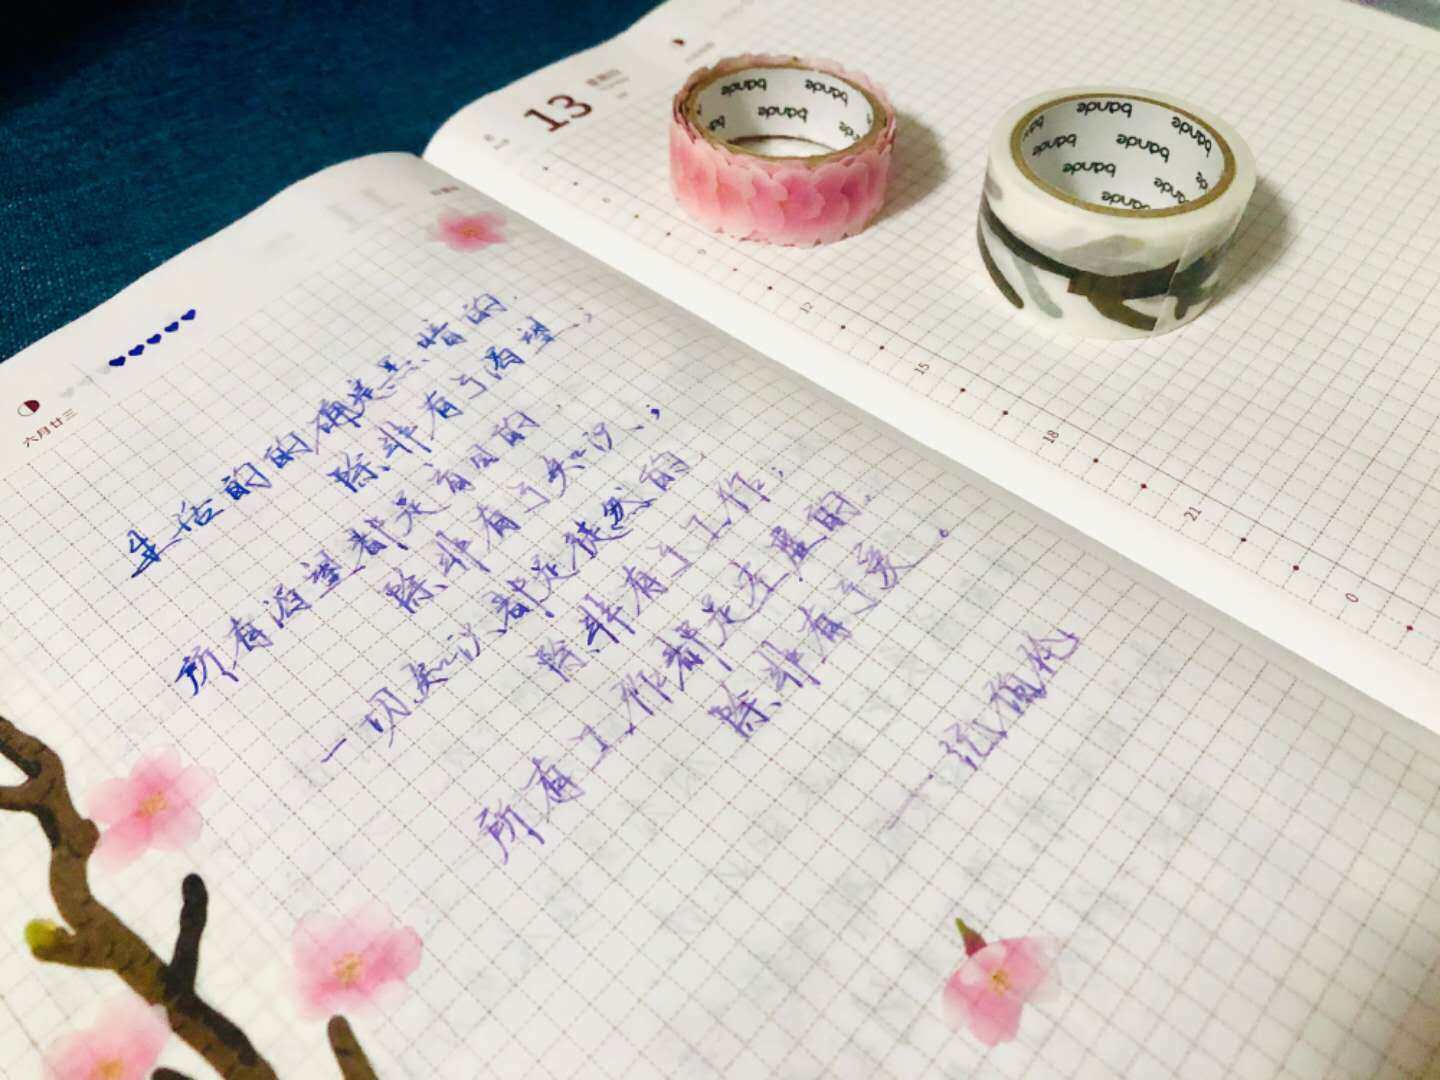 六月廿三
生活的的确是黑暗的,
除非有了渴望;
所有渴望都是盲目的,
除非有了知识;
一切知识都是徒然的,
除非有了工作;
所有工作都是空虚的,
除非有了爱。
——纪伯伦
13
6
9
12
15
18
21
0
bande
bande
bande
bande
bande
bande
bande
bande